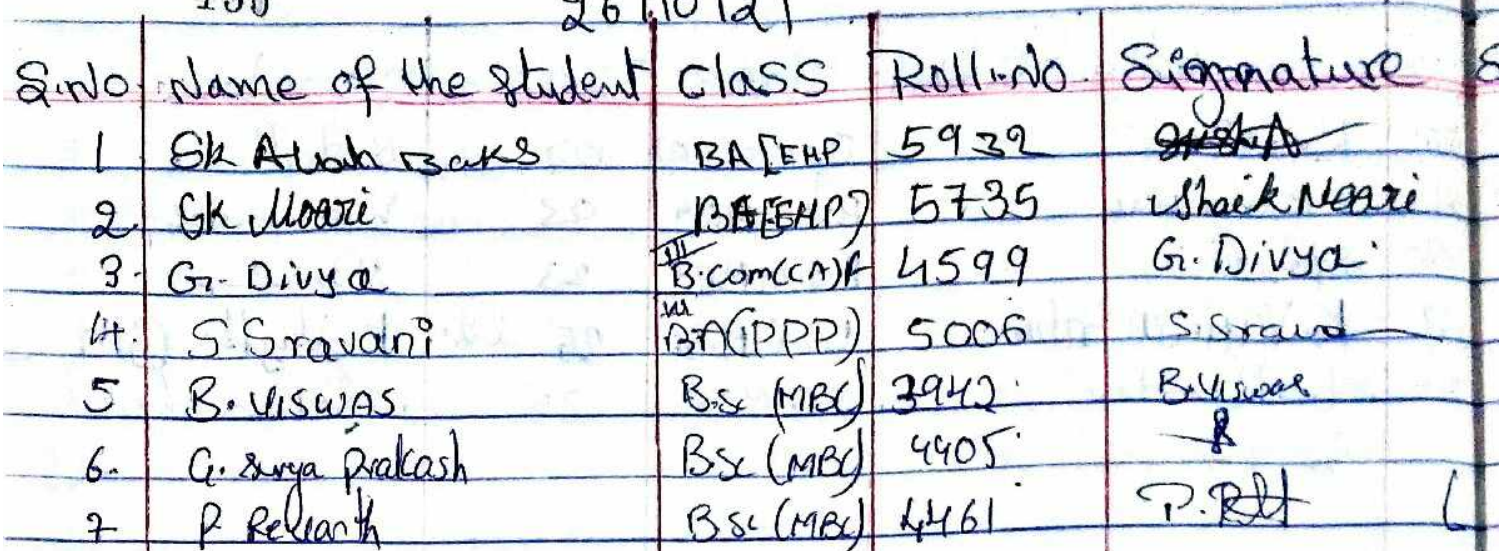 26/10/21
S.No Name of the student Class Roll.No. Signature
1 Sk Allah Baks BA[EHP 5932
2. Sk Moori BA[EHP] 5735 Shaik Moori
3. G. Divya III B.com(CA)A 4599 G. Divya
4. S. Sravani III BA(PPP) 5006 S. Sravad
5 B. VISWAS B.Sc (MBC) 3942 B. Viswas
6. G. Surya Prakash BSc (MBC) 4405
7 P. Revanth BSc (MBC) 4461